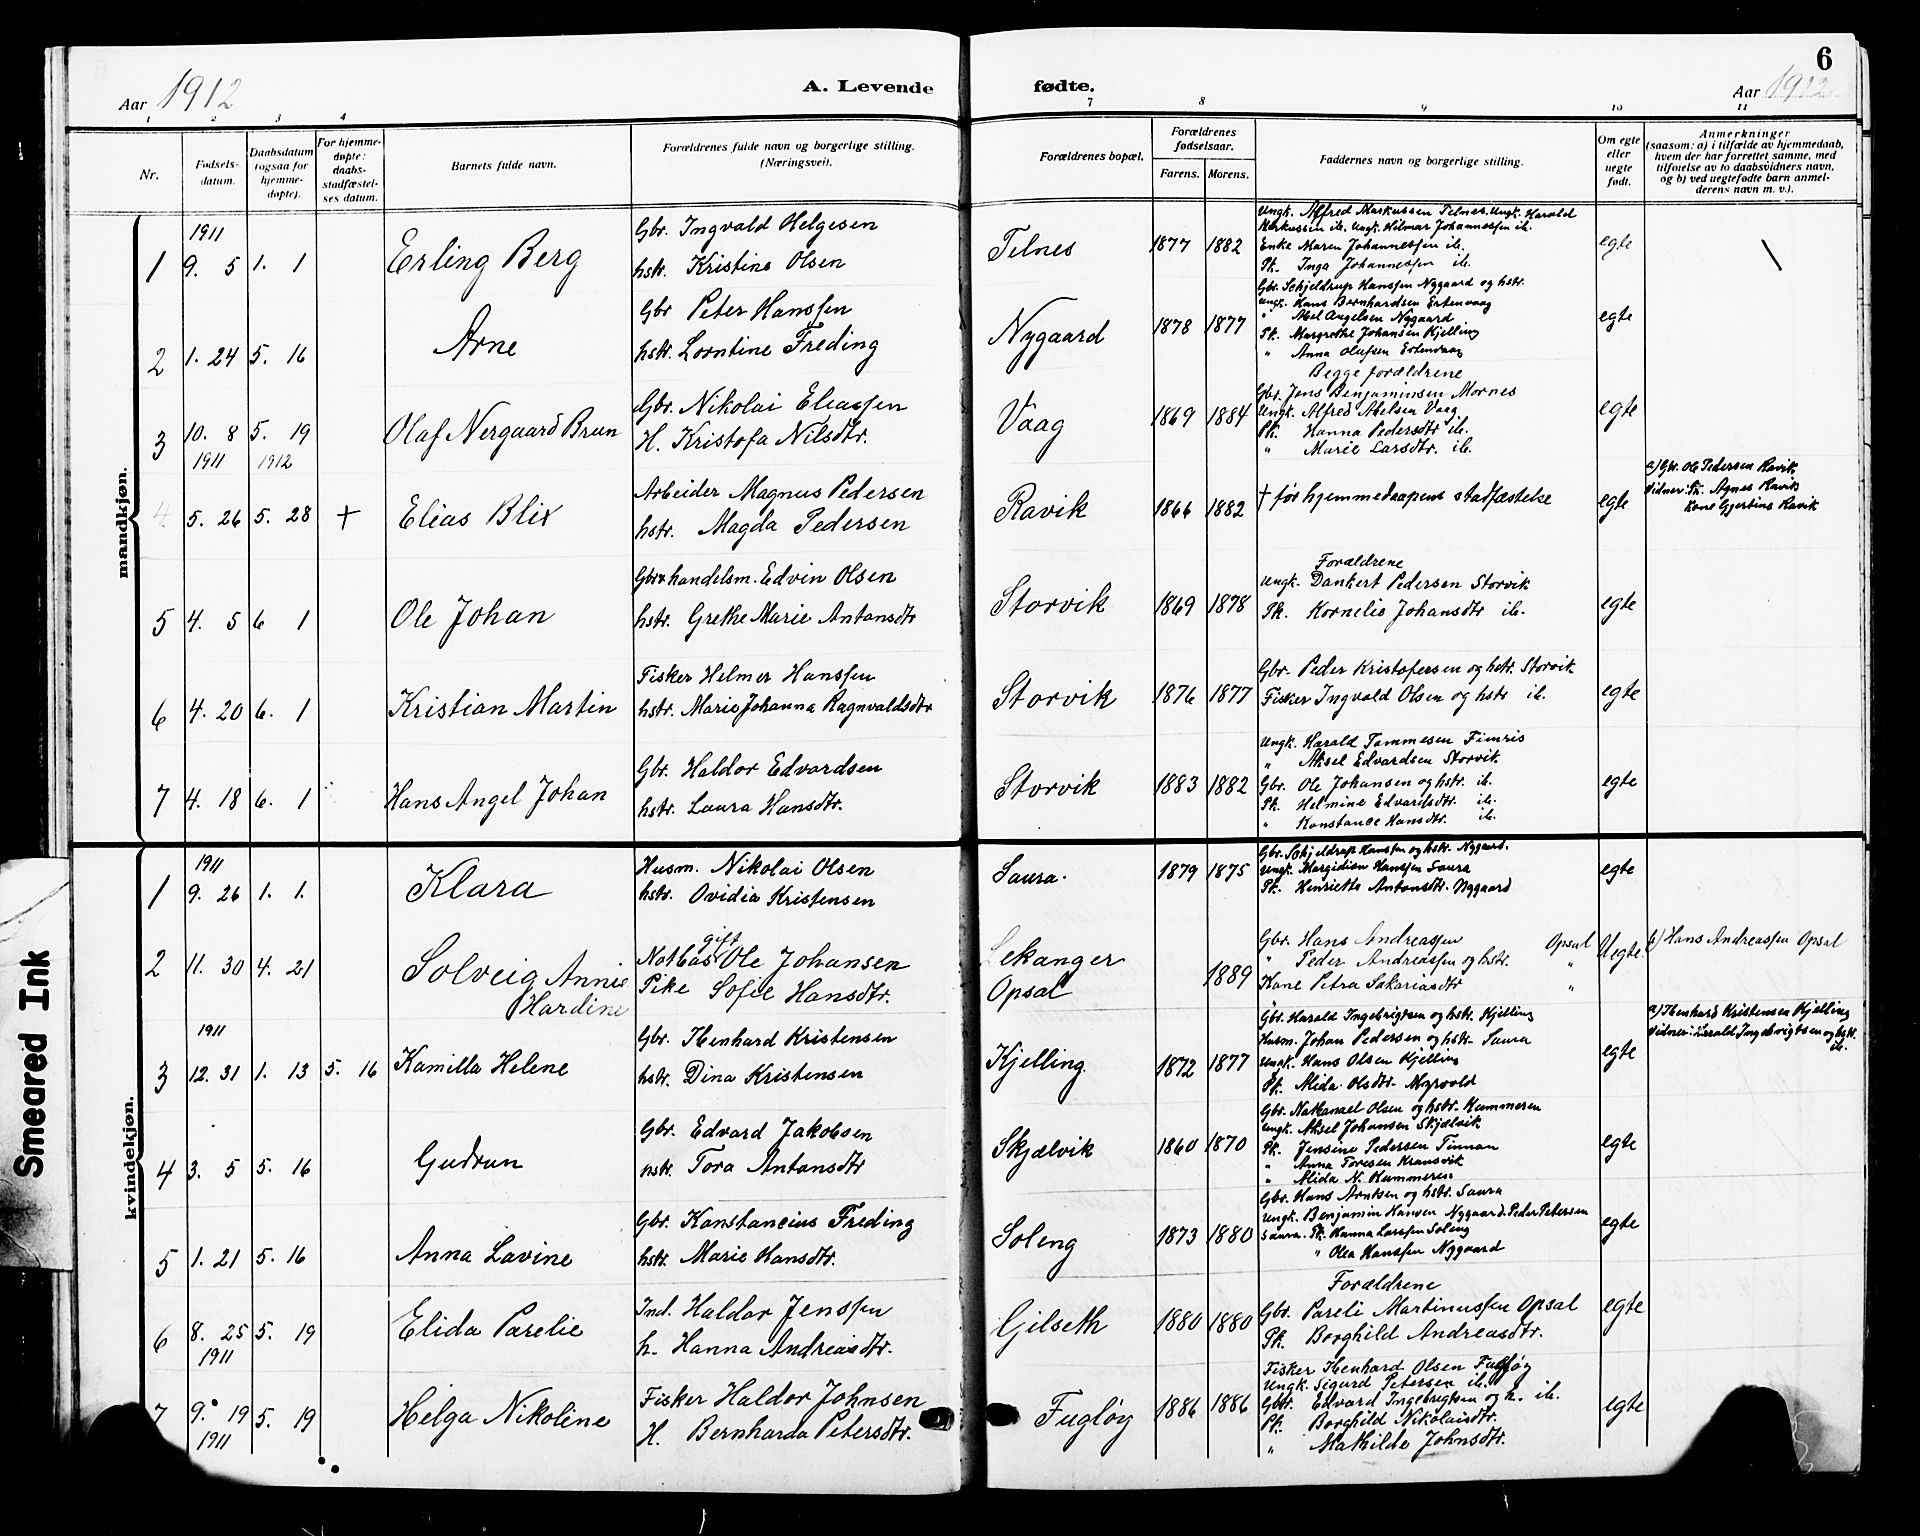 6
Aar 1912
A. Levende fødte.
Aar 1912
1 2 3 4 7 8 9 10 11
Nr.
Fødsels-
datum.
Daabsdatum
(ogsaa for
hjemme-
døpte).
For hjemme-
døpte:
daabs-
stadfæstel-
ses datum.
Barnets fulde navn.
Forældrenes fulde navn og borgerlige stilling.
(Næringsvei).
Forældrenes bopæl.
Forældrenes
fødselsaar.
Farens. Morens.
Faddernes navn og borgerlige stilling.
Om egte
eller
uegte
født.
Anmerkninger
(saasom: a) i tilfælde av hjemmedaab,
hvem der har forrettet samme, med
tilføielse av to daabsvidners navn,
og b) ved uegtefødte barn anmel-
derens navn m. v.).
mandkjøn.
1911
1 9. 5 1. 1 Erling Berg
Gbr. Ingvald Helgesen
hstr. Kristine Olsen
Telnes 1877 1882
Ungk. Alfred Markussen Telnes. Ungk. Harald
Markussen ib. Ungk. Hilmar Johannessen ib.
Enke Maren Johannessen ib.
Pk. Inga Johannessen ib.
egte
2 1. 24 5. 16 Arne
Gbr Peter Hanssen
hstr. Lorntine Freding
Nygaard 1878 1877
Gbr. Schjeldrup Hanssen Nygaard og hstr.
Ungk. Hans Bernhardsen Ertenvaag
" Abel Angelsen Nygaard
Pk. Margrethe Johansen Kjelling
" Anna Olufsen Ertenvaag
egte
3 10. 8 5. 19 Olaf Nergaard Brun
1911 1912
Gbr. Nikolai Eliassen
H. Kristofa Nilsdtr.
Vaag 1869 1884
Begge forældrene
Gbr. Jens Benjaminsen Mornes
Ungk. Alfred Abelsen Vaag
Pk. Hanna Pedersdtr ib.
" Marie Larsdtr. ib.
egte
4 5. 26 5. 28 + Elias Blix
Arbeider Magnus Pedersen
hstr. Magda Pedersen
Ravik 1866 1882
+ før hjemmedaapens stadfæstelse
egte
a) Gbr. Ole Pedersen Ravik
Vidner: Pk. Agnes Ravik
Kone Gjertine Ravik
5 4. 5 6 1 Ole Johan
Gbr & handelsm. Edvin Olsen
hstr. Grethe Marie Antonsdtr
Storvik 1869 1878
Forældrene
Ungk. Dankert Pedersen Storvik
Pk. Kornelie Johansdtr ib.
egte
6 4. 20 6. 1 Kristian Martin
Fisker Helmer Hanssen
hstr. Marie Johanna Ragnvaldsdtr
Storvik 1876 1877
Gbr. Peder Kristofersen og hstr. Storvik
Fisker Ingvald Olsen og hstr ib.
egte
7 4. 18 6. 1 Hans Angel Johan
Gbr. Haldor Edvardsen
hstr. Laura Hansdtr.
Storvik 1883 1882
Ungk. Harald Tommesen Fimris
" Aksel Edvardsen Storvik
Gbr. Ole Johansen og hstr. ib.
Pk. Helmine Edvardsdtr ib.
" Konstance Hansdtr. ib.
egte
kvindekjøn.
1911
1 9. 26 1. 1. Klara
Husm. Nikolai Olsen
hstr. Ovidia Kristensen
Saura. 1879 1875
Gbr. Schjeldrup Hanssen og hstr. Nygaard.
Ungk. Margidian Hanssen Saura
Pk. Henriette Antonsdtr. Nygaard
egte
2 11. 30 4. 21 Solveig Annie
Hardine
gift
Notbas Ole Johansen
Pike Sofie Hansdtr.
Lekanger
Opsal 1889
Gbr. Hans Andreassen Opsal
" Peder Andreassen og hstr. "
Kone Petra Sakariasdtr "
Uegte
b) Hans Andreassen Opsal
1911
3 12. 31 1. 13 5. 16 Kamilla Helene
Gbr. Thenhard Kristensen
hstr. Dina Kristensen
Kjelling 1872 1877
Gbr. Harald Ingebrigtsen og hstr. Kjelling
Husm. Johan Pedersen og hstr. Saura
Ungk. Hans Olsen Kjelling
Pk. Alida Olsdtr. Myrvold
egte
a) Thenhard Kristensen Kjelling
Vidner: Harald Ingebrigtsen og hstr.
ib.
4 3. 5 5. 16 Gudrun
Gbr. Edvard Jakobsen
hstr. Tora Antonsdtr
Skjælvik 1860 1870
Gbr. Nathanael Olsen og hstr. Kummeren
Ungk. Aksel Johansen Skjælvik
Pk. Jensine Pedersen Finnan
" Anna Toresen Kransvik
" Alida N. Kummeren
egte
5 1. 21 5. 16 Anna Lavine
Gbr. Konstancius Freding
hstr. Marie Hansdtr.
Soleng 1873 1880
Gbr. Hans Arntsen og hstr. Saura
Ungk. Benjamin Hansen Nygaard. Peder Petersen
Saura. Pk. Hanna Larssen Soleng
" Olea Hanssen Nygaard
egte
6 8. 25 5. 19 Elida Parelie
1911
Ind. Haldor Jenssen
h. Hanna Andreasdtr.
Gilseth 1880 1880
Forældrene
Gbr. Pareli Martinussen Opsal
Pk. Borghild Andreasdtr.
egte
7 9. 19 5. 19 Helga Nikoline
1911
Fisker Haldor Johnsen
H. Bernharda Petersdtr.
Fugløy 1886 1886
Fisker Thenhard Olsen Fugløy
Ungk. Sigurd Petersen ib.
Gbr. Edvard Ingebrigtsen og h. ib.
Pk. Borghild Nikolaisdtr.
" Mathilde Johnsdtr.
egte
Smeared Ink